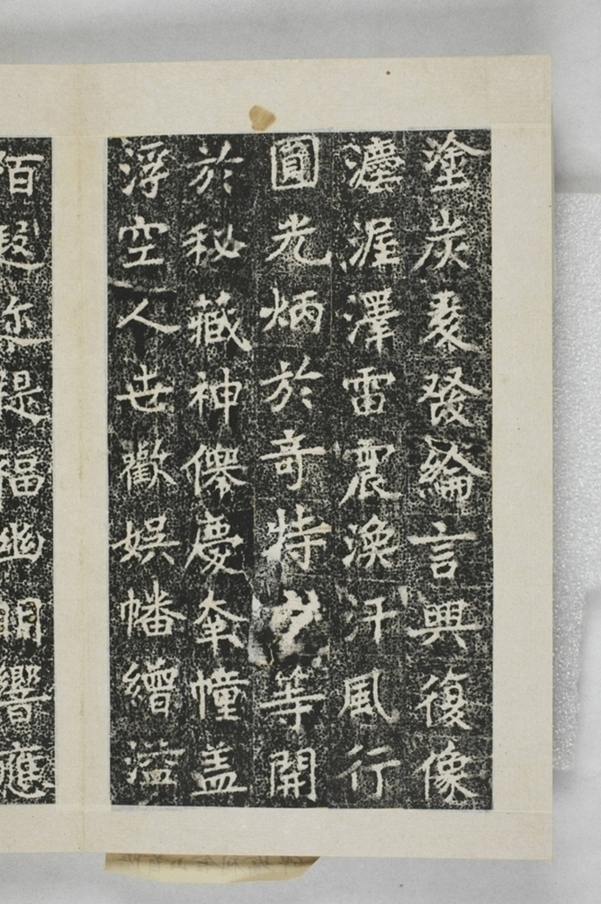 塗炭爰發綸言興復像
灋渥澤雷震渙汗風行
圓光炳於奇特等開
於秘藏神僊慶牽幢盖
浮空人世歡娛幡繒溢
陌遐迩禔福幽明響應